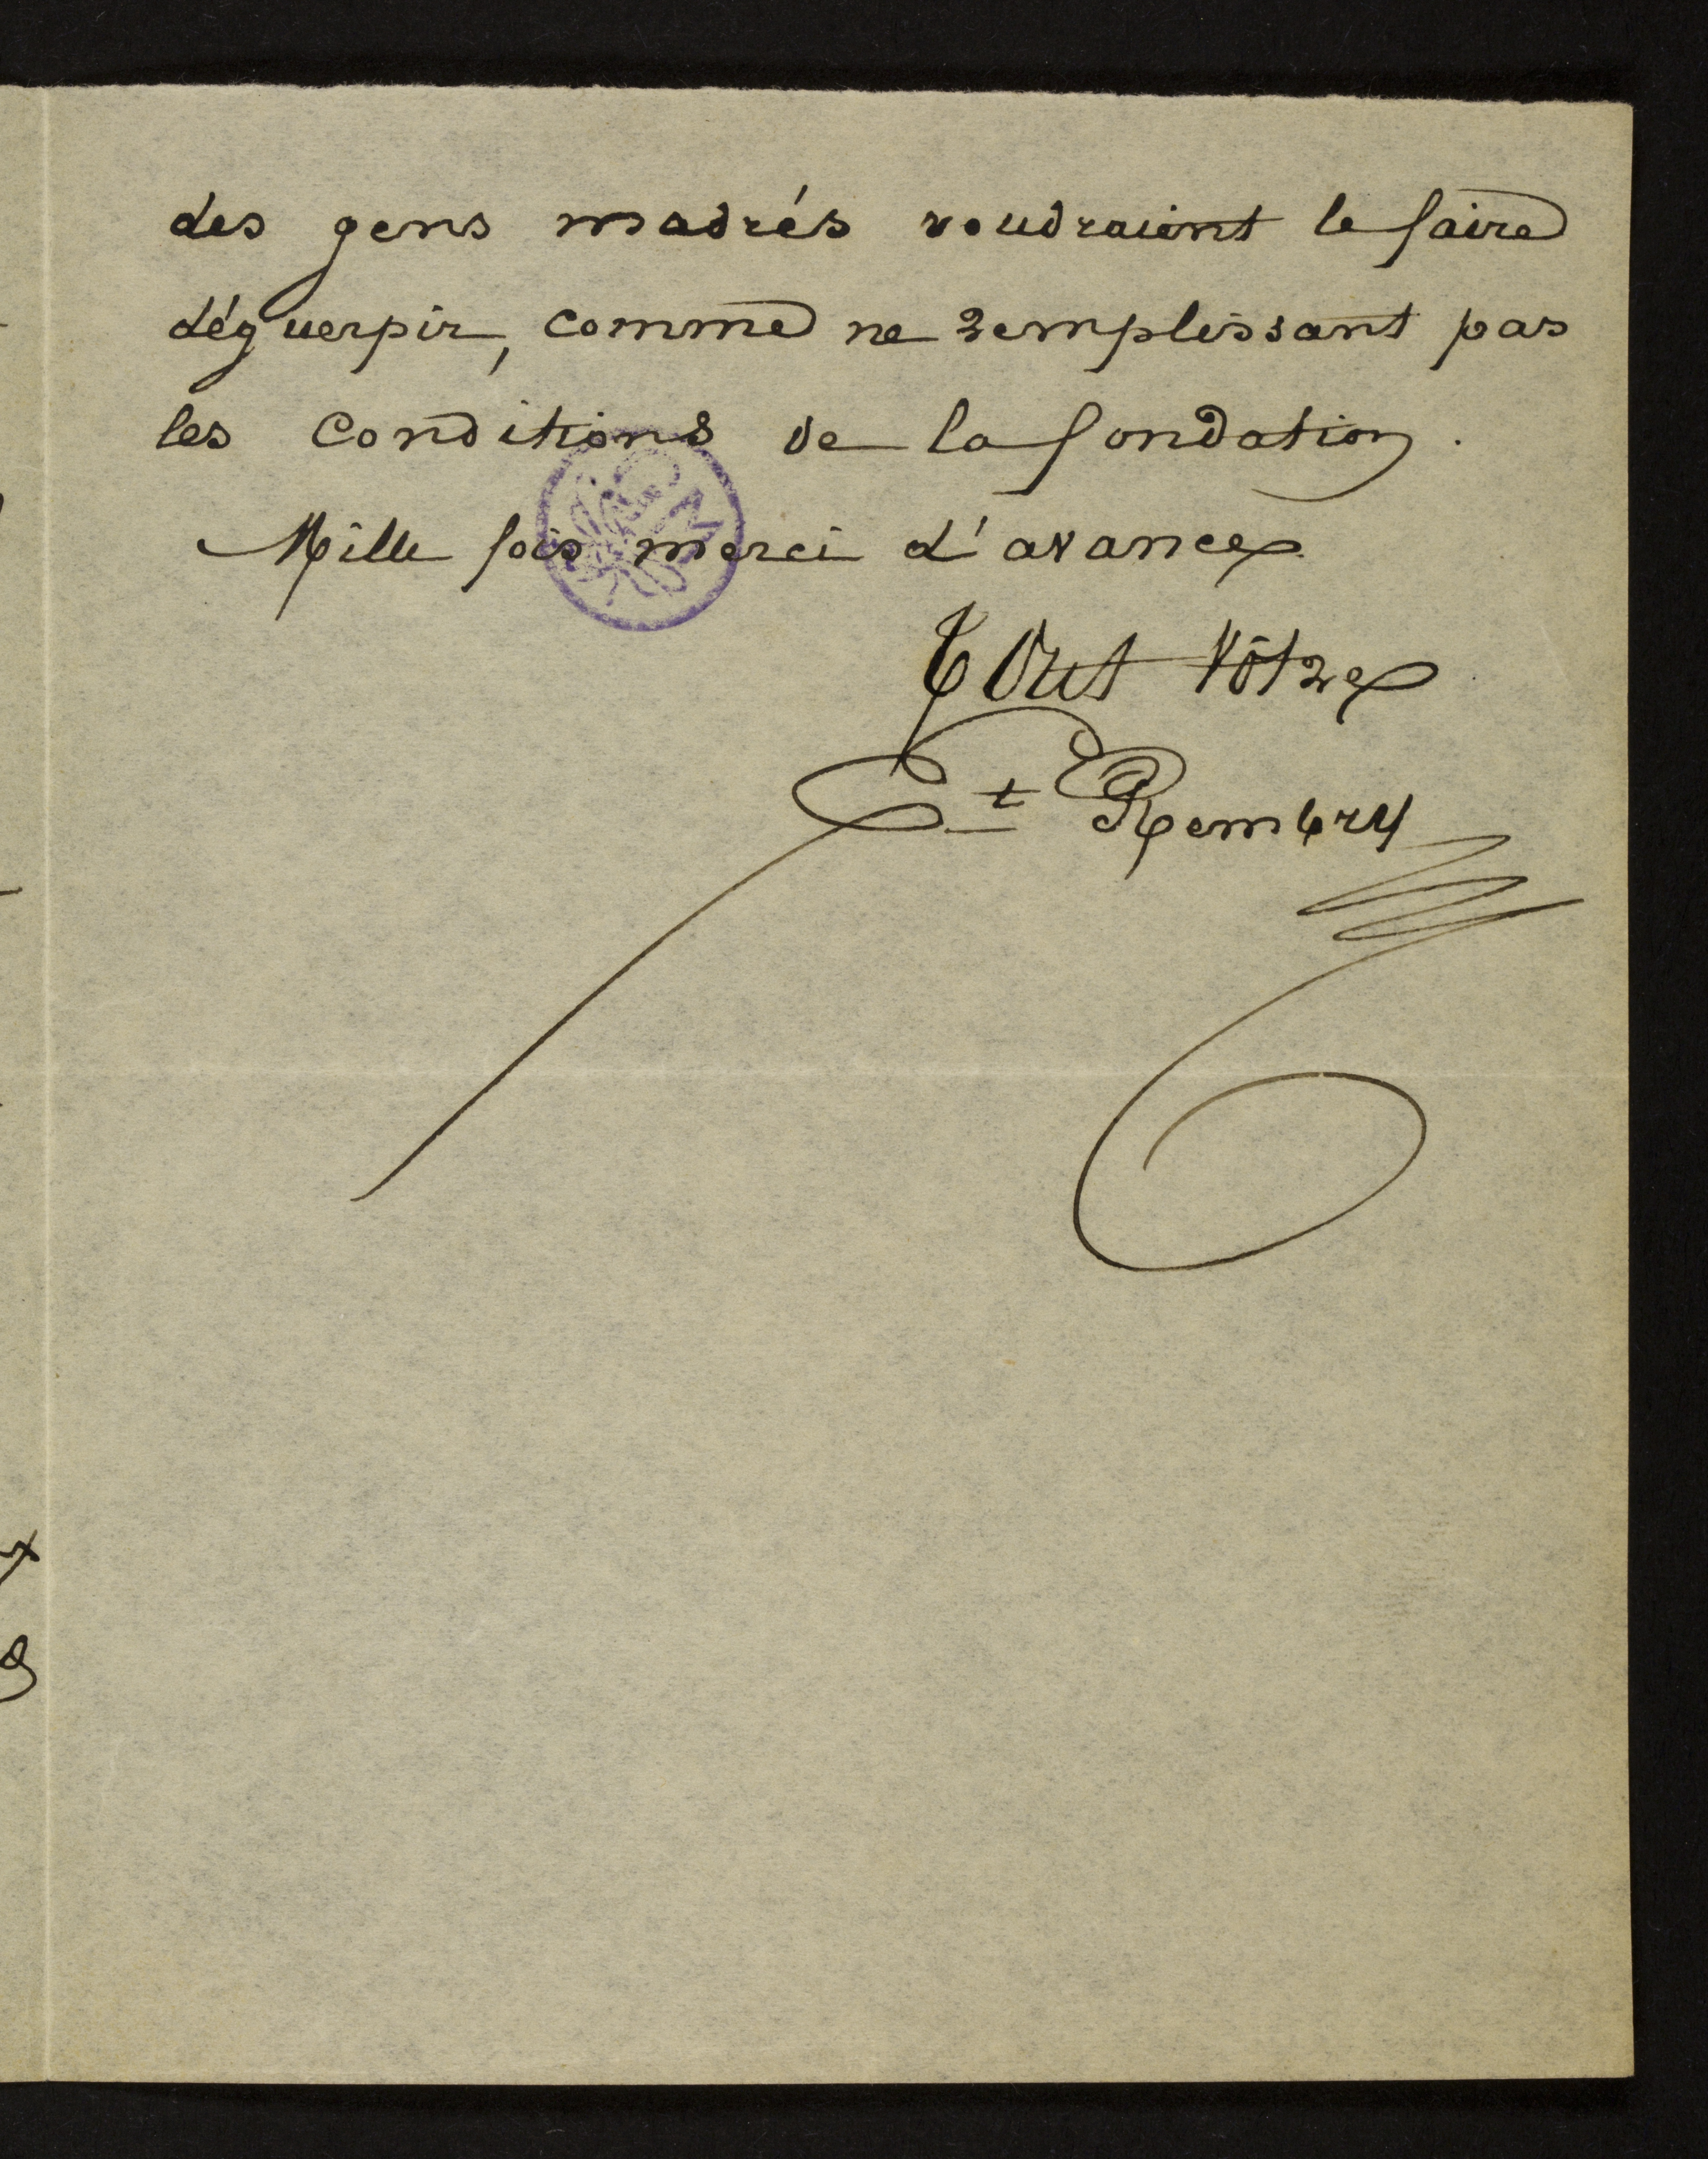 des gens madrés voudraient le faire
déguerpir, comme ne remplissant pas
les conditions de la fondation.
Mille fois merci d'avance
Tout vôtre
Et Rembry